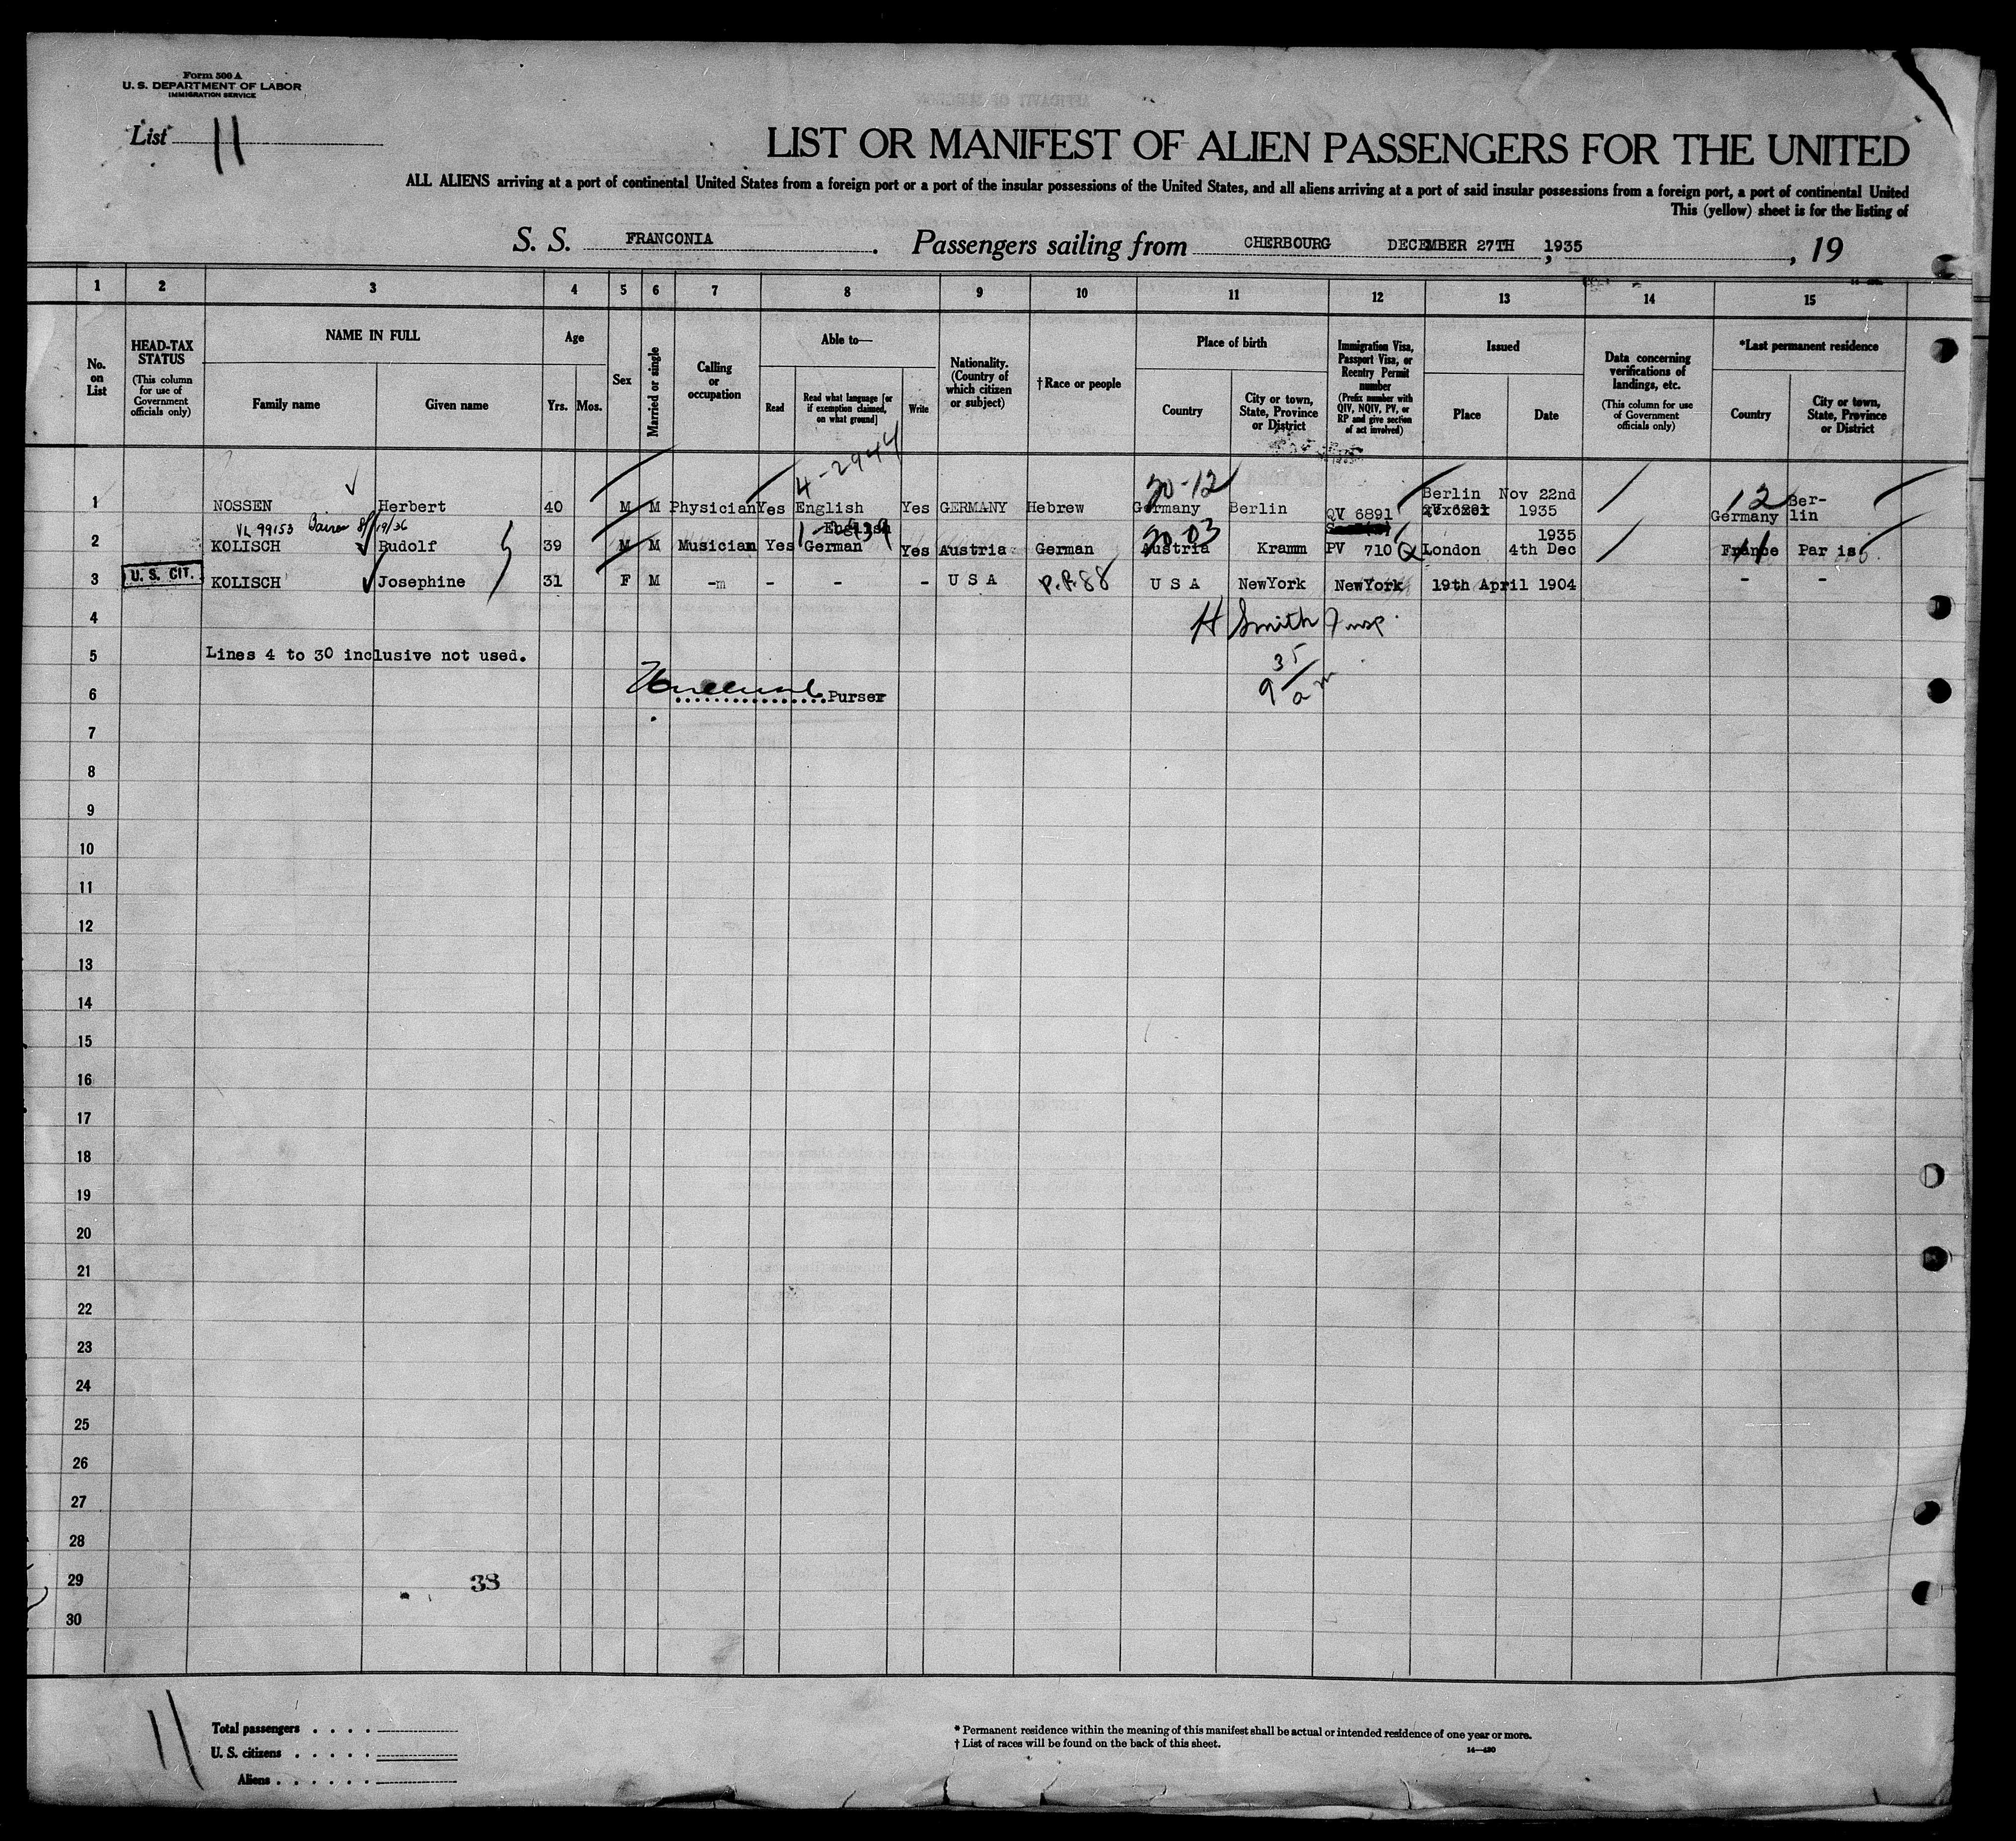 Form 500 A
U. S. DEPARTMENT OF LABOR
IMMIGRATION SERVICE
List 11
LIST OR MANIFEST OF ALIEN PASSENGERS FOR THE UNITED
ALL ALIENS arriving at a port of continental United States from a foreign port or a port of the insular possessions of the United States, and all aliens arriving at a port of said insular possessions from a foreign port, a port of continental United
This (yellow) sheet is for the listing of
S. S. FRANCONIA. Passengers sailing from CHERBOURG DECEMBER 27TH, 1935, 19
1 2 3 4 5 6 7 8 9 10 11 12 13 14 15
No. on List
HEAD-TAX STATUS
(This column for use of Government officials only)
NAME IN FULL
Family name
Given name
Age
Yrs. Mos.
Sex
Married or single
Calling or occupation
Able to—
Read
Read what language [or if exemption claimed, on what ground]
Write
Nationality. (Country of which citizen or subject)
†Race or people
Place of birth
Country
City or town, State, Province or District
Immigration Visa, Passport Visa, or Reentry Permit number
(Prefix number with QIV, NQIV, PV, or RP and give section of act involved)
Issued
Place
Date
Data concerning verifications of landings, etc.
(This column for use of Government officials only)
*Last permanent residence
Country
City or town, State, Province or District
4-2944
20-12
12
1 NOSSEN Herbert 40 M M Physician Yes English Yes GERMANY Hebrew Germany Berlin QV 6891 Berlin Nov 22nd 1935 Germany Ber-lin
VL 99153 8/19/36
English
20 03
2 KOLISCH Rudolf 39 M M Musician Yes German Yes Austria German Austria Kramm PV 710 London 4th Dec 1935 France Paris
U. S. CIT.
3 KOLISCH Josephine 31 F M -m - - - U S A P.P. 88 U S A NewYork NewYork 19th April 1904 - -
4
H Smith Insp.
5 Lines 4 to 30 inclusive not used.
35
6 Purser
9 am
7
8
9
10
11
12
13
14
15
16
17
18
19
20
21
22
23
24
25
26
27
28
29 38
30
11
Total passengers . . . .
U. S. citizens . . . . .
Aliens . . . . . .
* Permanent residence within the meaning of this manifest shall be actual or intended residence of one year or more.
† List of races will be found on the back of this sheet.
14—430